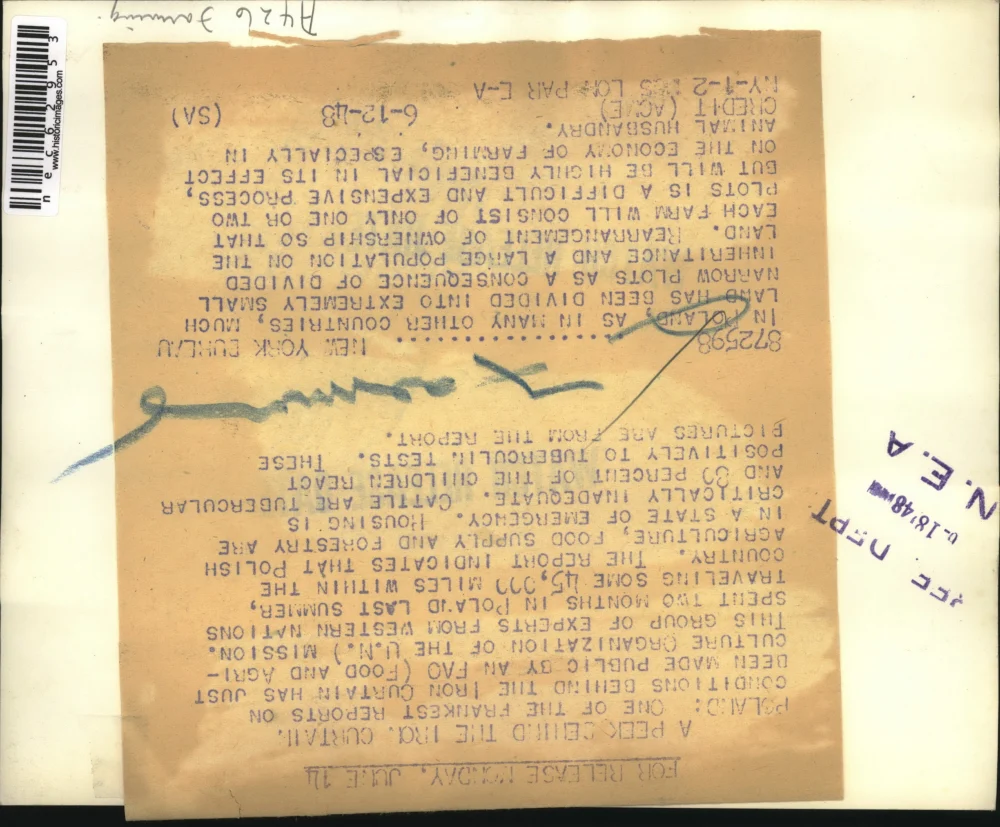 FOR RELEASE MONDAY, JUNE 14
A PEEK BEHIND THE IRON CURTAIN
POLAND: ONE OF THE FRANKEST REPORTS ON
CONDITIONS BEHIND THE IRON CURTAIN HAS JUST
BEEN MADE PUBLIC BY AN FAO (FOOD AND AGRI-
CULTURE ORGANIZATION OF THE U.N.) MISSION.
THIS GROUP OF EXPERTS FROM WESTERN NATIONS
SPENT TWO MONTHS IN POLAND LAST SUMMER,
TRAVELING SOME 45,000 MILES WITHIN THE
COUNTRY. THE REPORT INDICATES THAT POLISH
AGRICULTURE, FOOD SUPPLY AND FORESTRY ARE
IN A STATE OF EMERGENCY. HOUSING IS
CRITICALLY INADEQUATE. CATTLE ARE TUBERCULAR
AND 80 PERCENT OF THE CHILDREN REACT
POSITIVELY TO TUBERCULIN TESTS. THESE
PICTURES ARE FROM THE REPORT.
872598 NEW YORK BUREAU
IN POLAND, AS IN MANY OTHER COUNTRIES, MUCH
LAND HAS BEEN DIVIDED INTO EXTREMELY SMALL
NARROW PLOTS AS A CONSEQUENCE OF DIVIDED
INHERITANCE AND A LARGE POPULATION ON THE
LAND. REARRANGEMENT OF OWNERSHIP SO THAT
EACH FARM WILL CONSIST OF ONLY ONE OR TWO
PLOTS IS A DIFFICULT AND EXPENSIVE PROCESS,
BUT WILL BE HIGHLY BENEFICIAL IN ITS EFFECT
ON THE ECONOMY OF FARMING, ESPECIALLY IN
ANIMAL HUSBANDRY.
CREDIT (ACME) 6-12-48 (SA)
NY-1-2 LON PAR E-A
Farming
A426 Farming.
N.E.A
DEPT
nec62953
www.historicimages.com